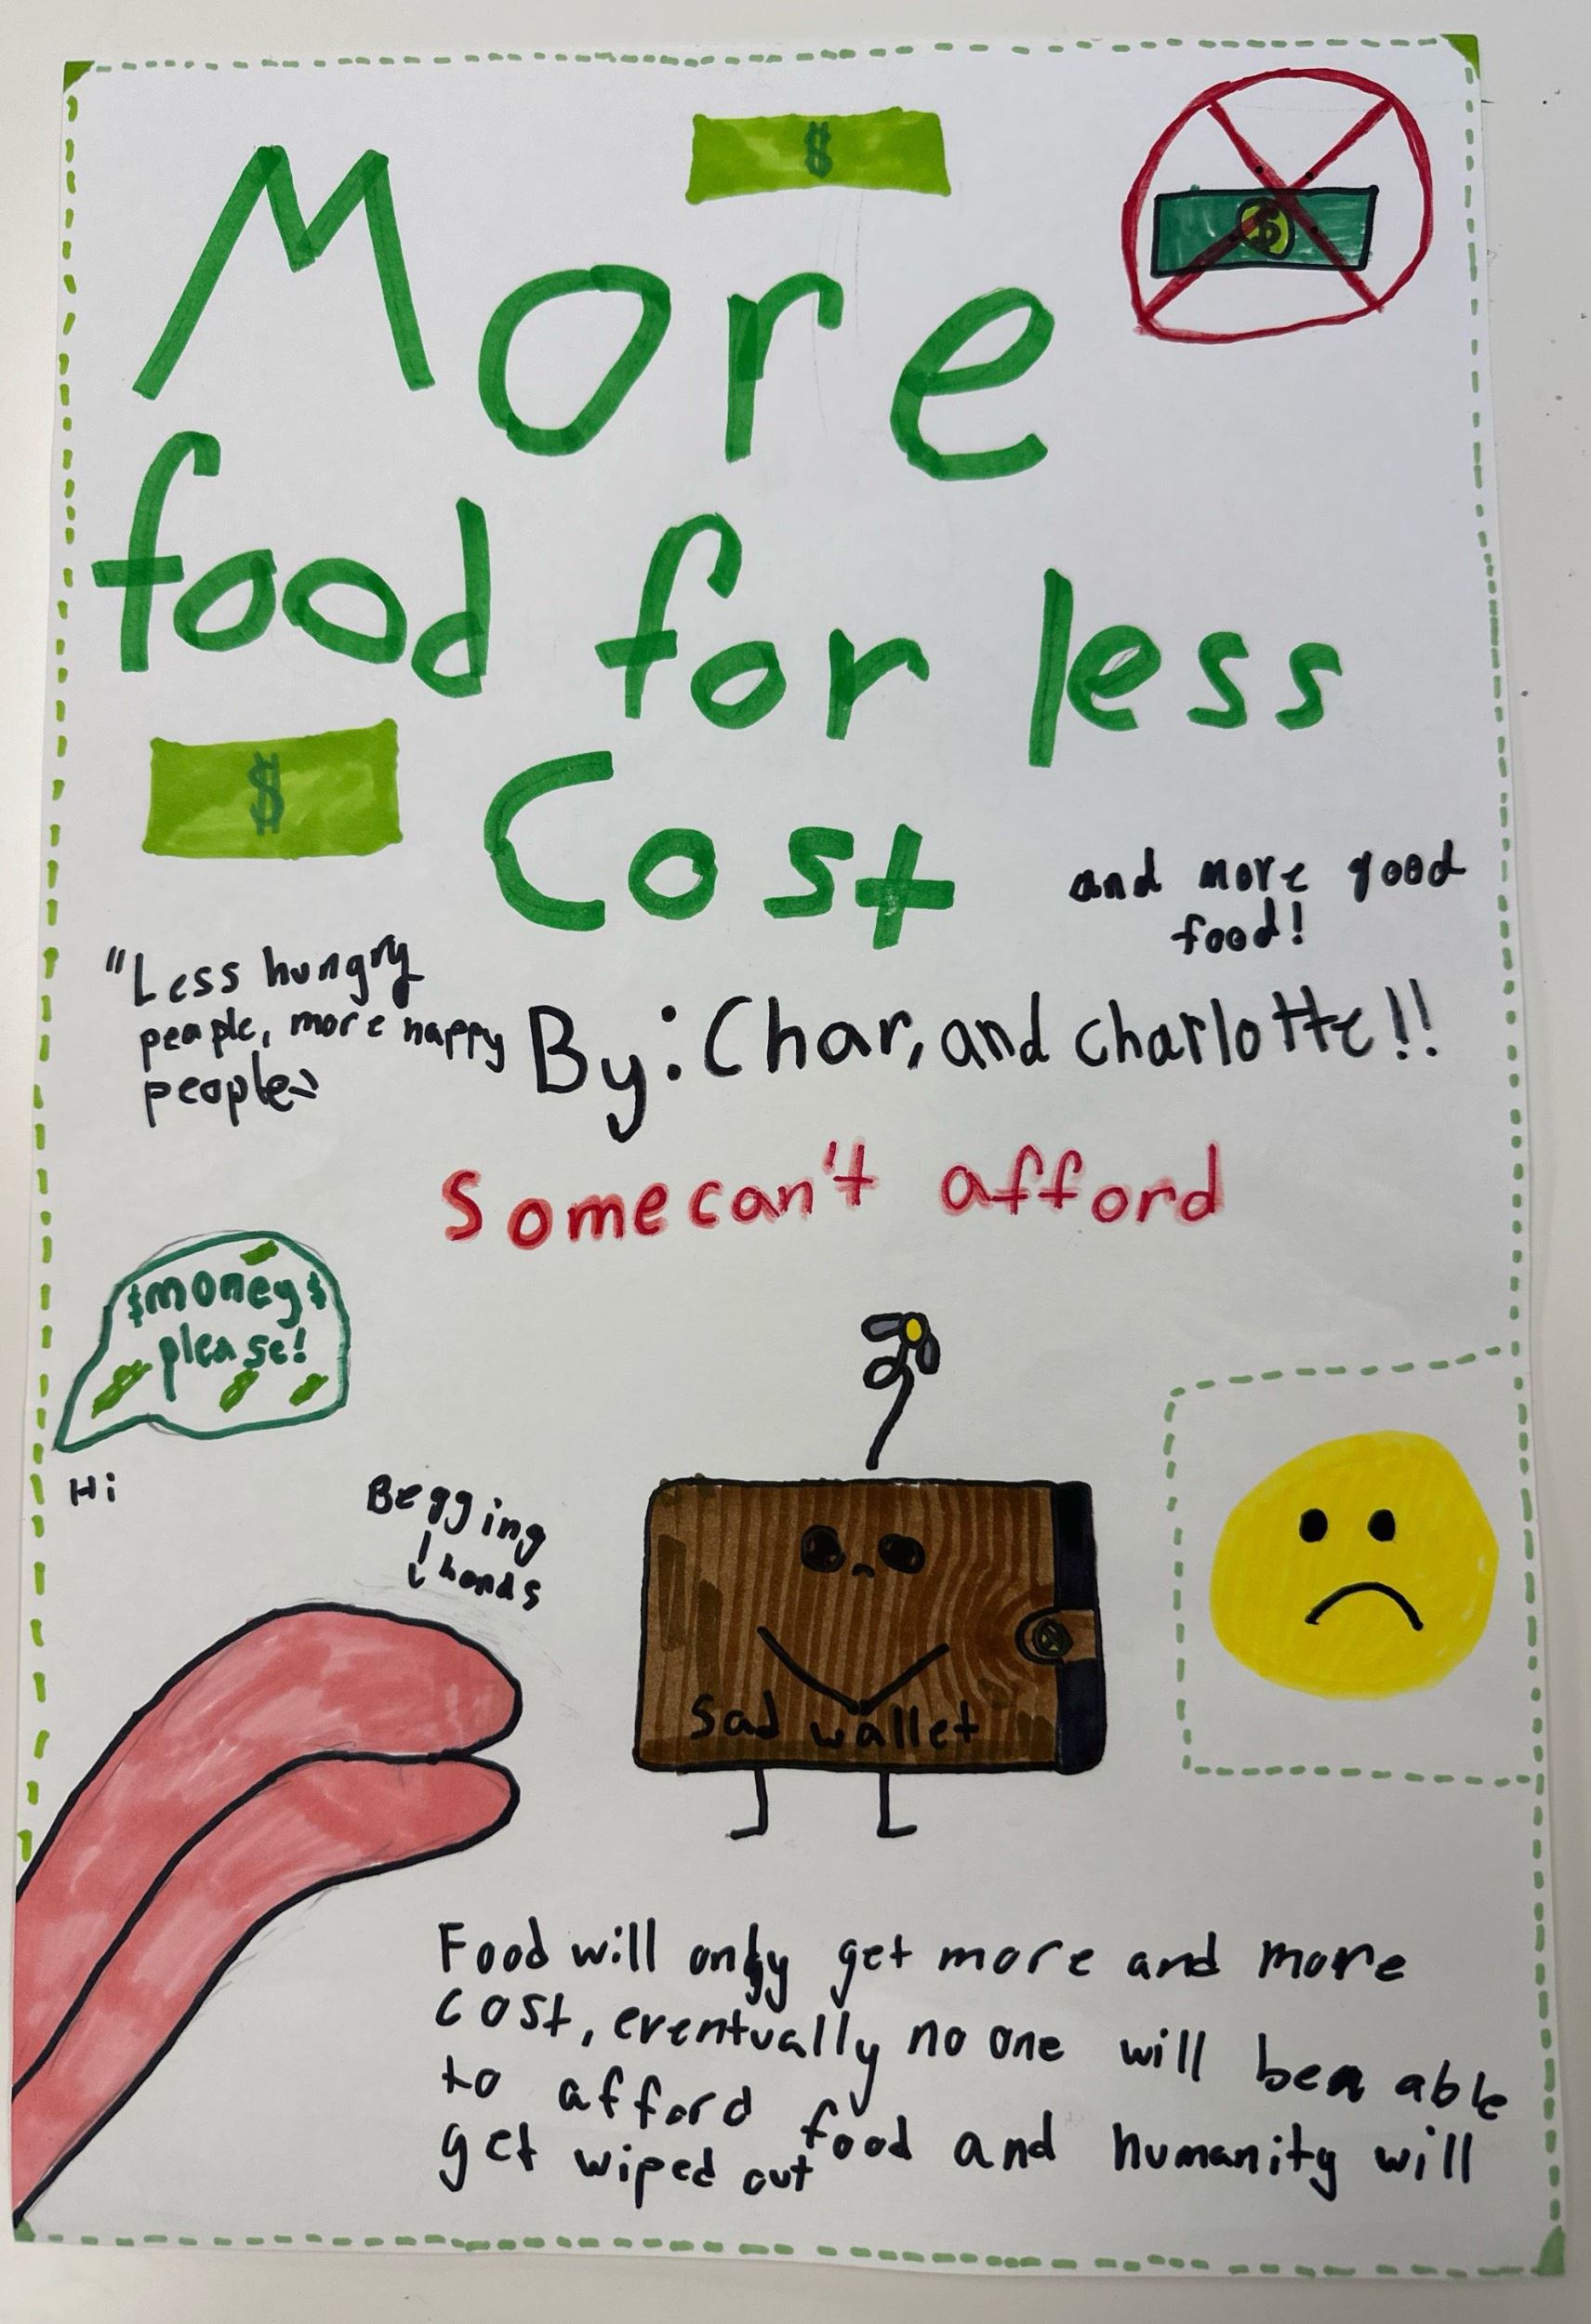 $
$
More
food for less
$
Cost
and more good
food!
"Less hungry
people, more happy
people"
By: Char, and charlotte!!
Some can't afford
$money$
please!
Hi
Begging
hands
Sad wallet
Food will only get more and more
cost, eventually no one will be able
to afford food and humanity will
get wiped out